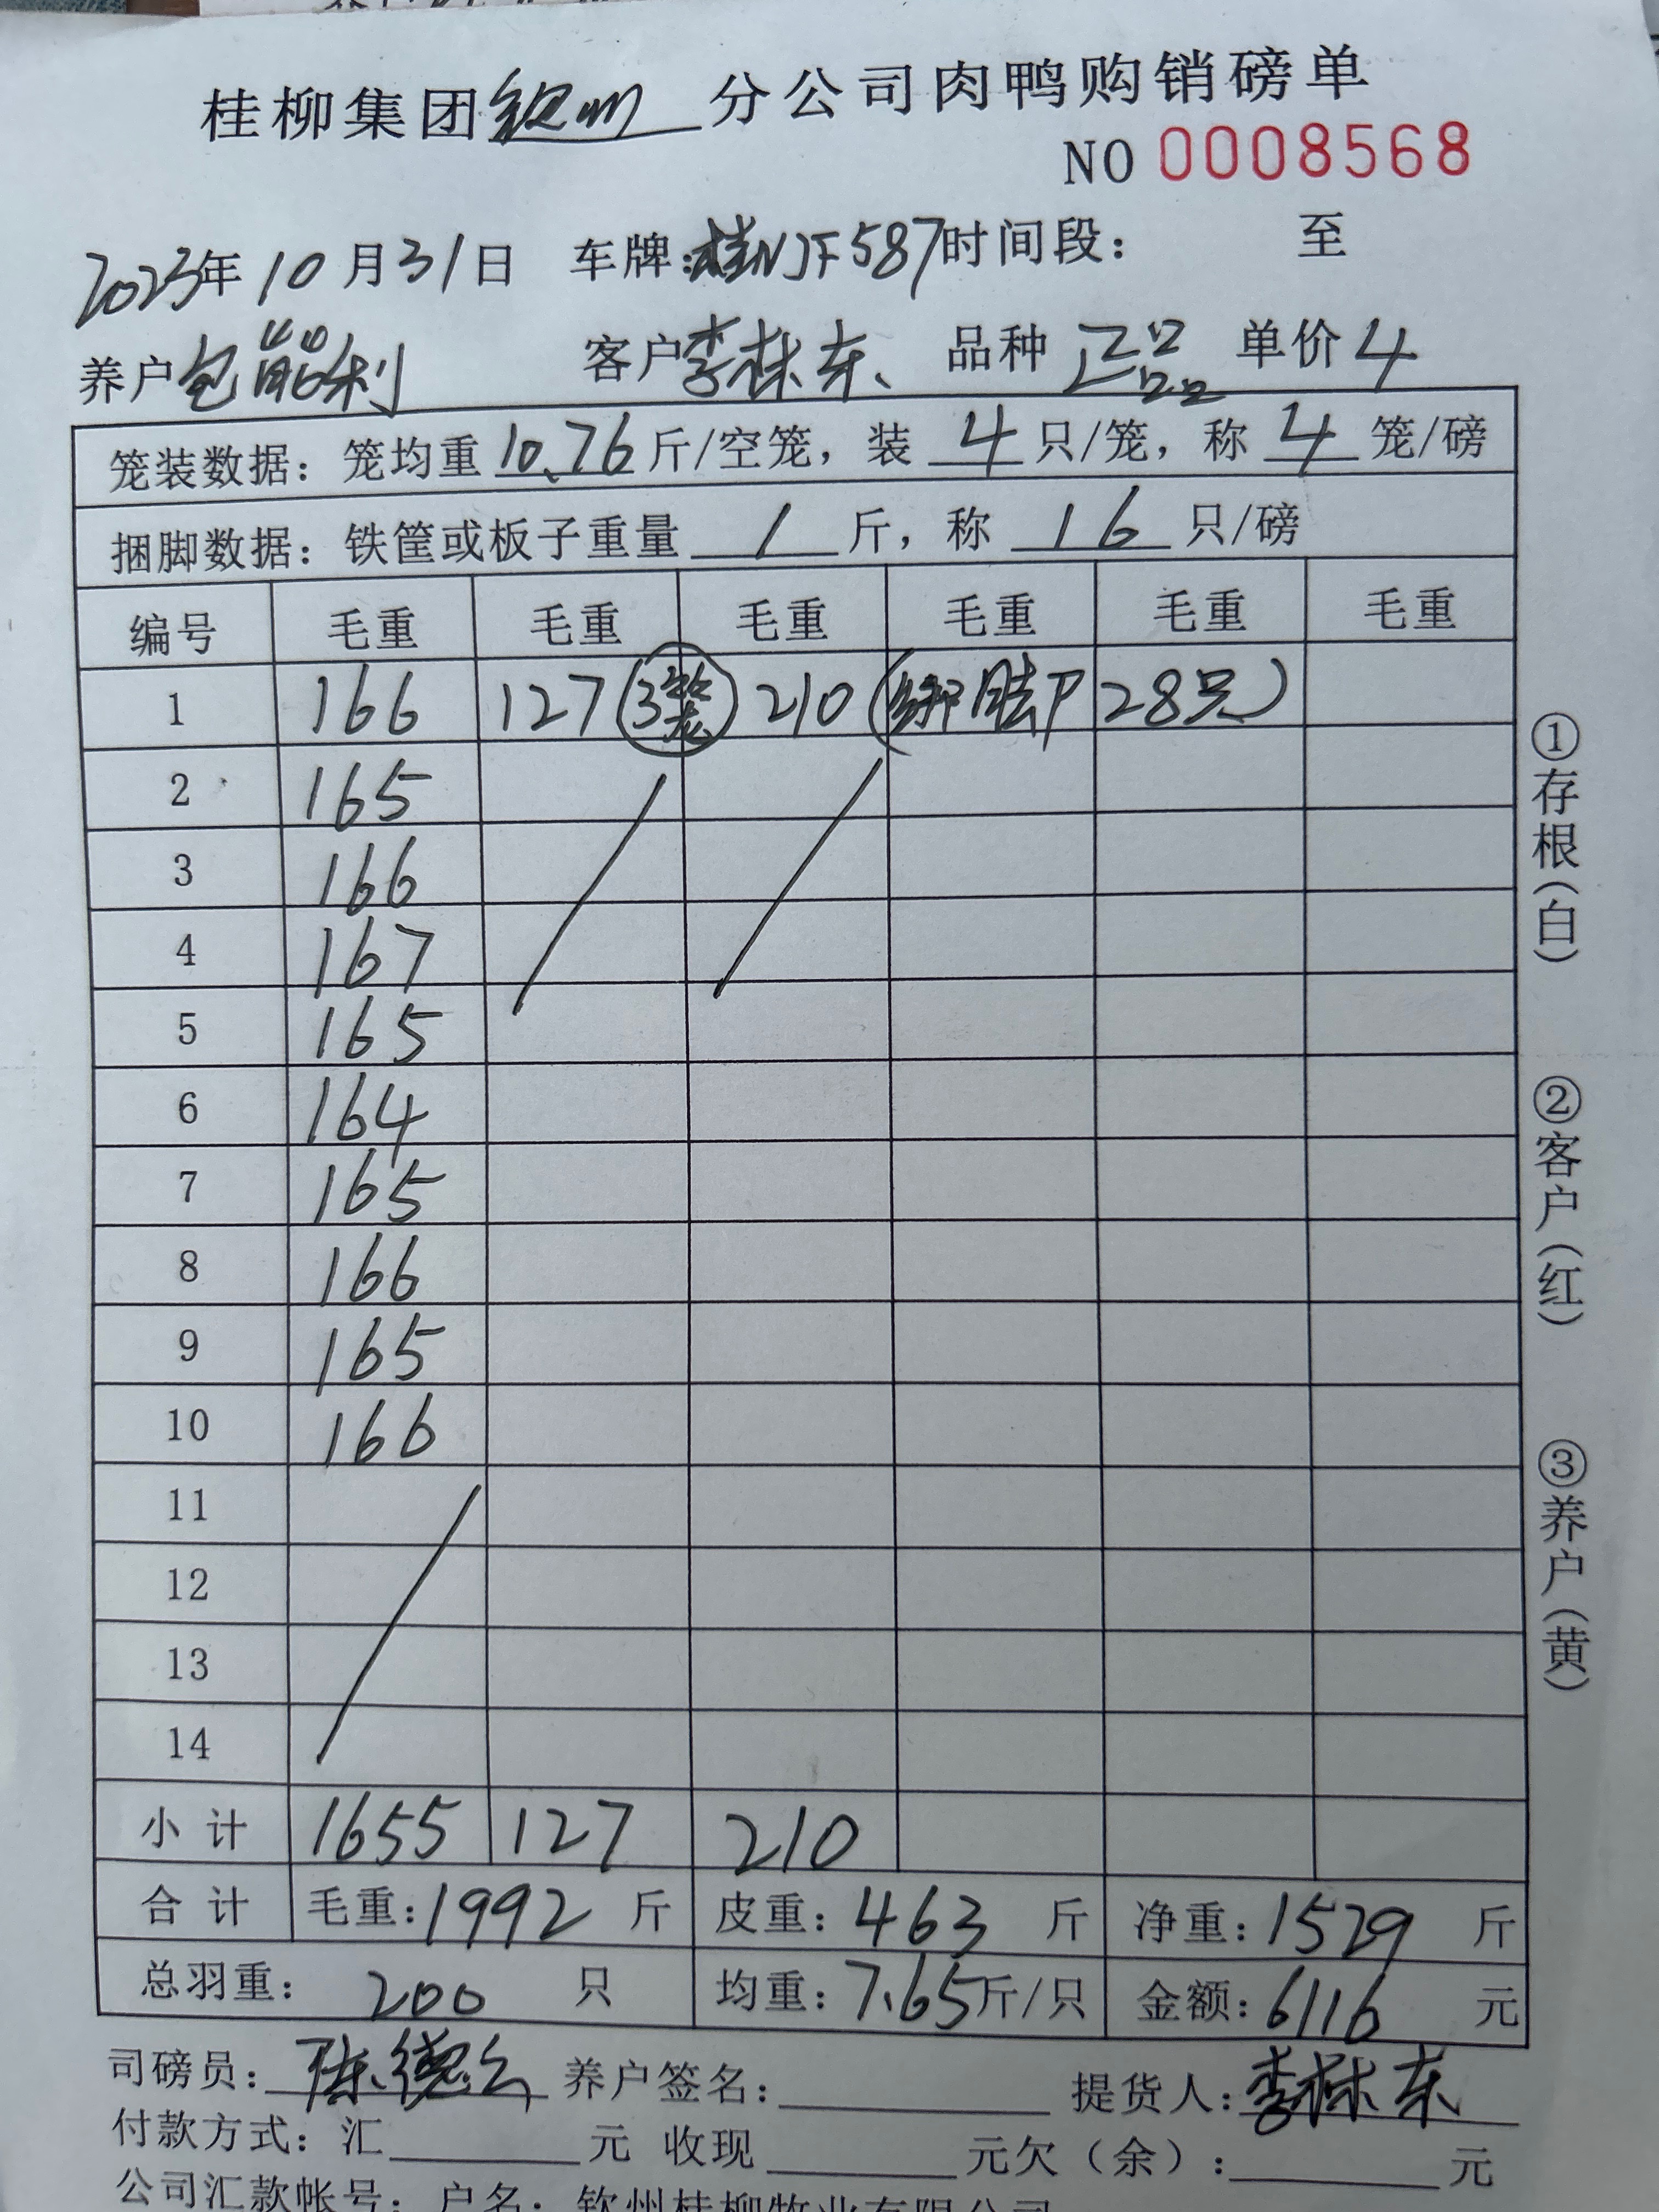 桂柳集团钦州分公司肉鸭购销磅单
NO 0008568
2023年10月31日 车牌:桂NJF587时间段: 至
养户包能利 客户李栋东、 品种 正品 单价4
笼装数据:笼均重10.76斤/空笼,装 4 只/笼,称 4 笼/磅
捆脚数据:铁筐或板子重量 / 斤,称 16 只/磅
编号 毛重 毛重 毛重 毛重 毛重 毛重
1 166 127(3笼) 210 (绑脚 28只)
2 165
3 166
4 167
5 165
6 164
7 165
8 166
9 165
10 166
11
12
13
14
小计 1655 127 210
合计 毛重:1992 斤 皮重:463 斤 净重:1529 斤
总羽重:200 只 均重:7.65斤/只 金额:6116 元
司磅员: 养户签名: 提货人:李栋东
付款方式:汇 元 收现 元欠(余): 元
公司汇款帐号:户名:钦州桂柳牧业有限公司
①存根(白)
②客户(红)
③养户(黄)